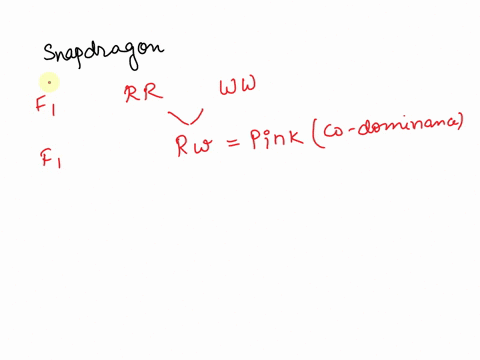 Snapdragon
F1 RR WW
F1 RW = Pink (Co-dominana)